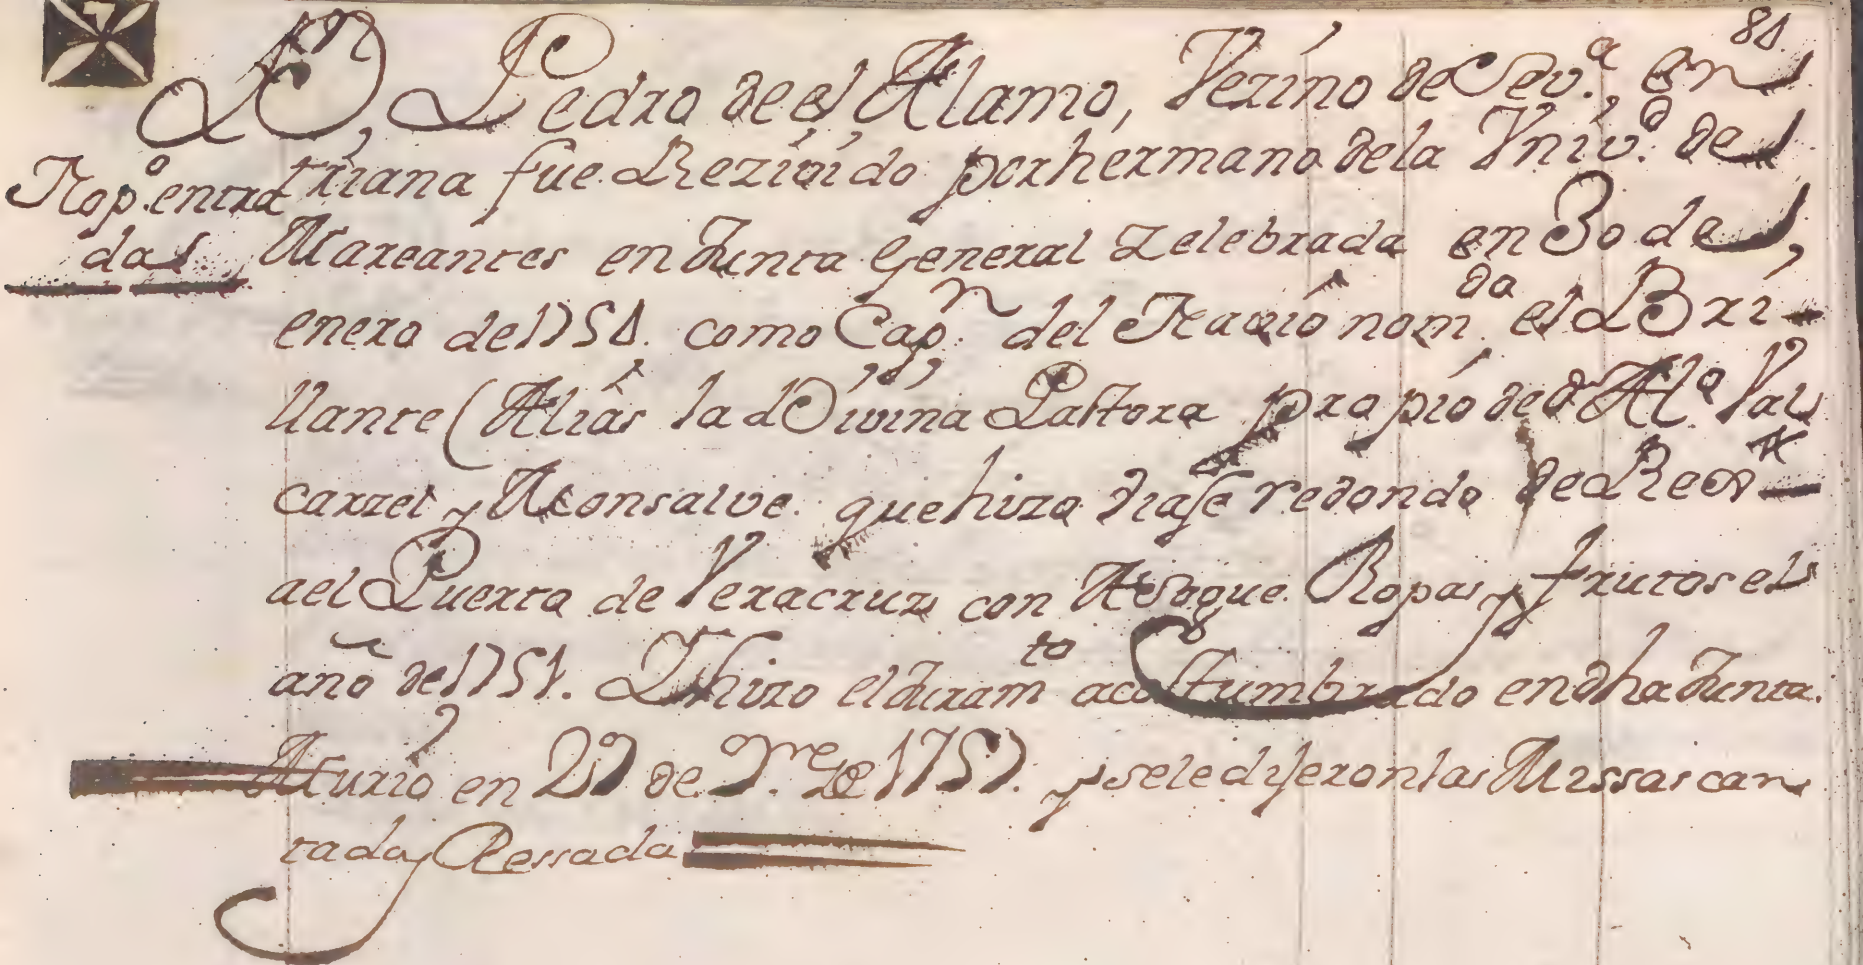 84
Dn Pedro de el Alamo, Vezino de Seva. en
triana fue Rezivido por hermano de la Univd. de
No pº. entra
das
Mareantes en Junta General Zelebrada en 30 de
enero de 1754. como Capn. del Navio nomdo el Bri
llante (Alias la Divina Pastora propio de dn Al.º Val
carzel y Monsalve. que hizo viaje redondo de
ael Puerto de Veracruz con Asogue Ropas y frutos el
año de 1751. I hizo el Juramto acostumbrado en dha Junta.
Murio en 27 de 9re. de 1757. y se le dijeron las Missas can
tada y Ressada